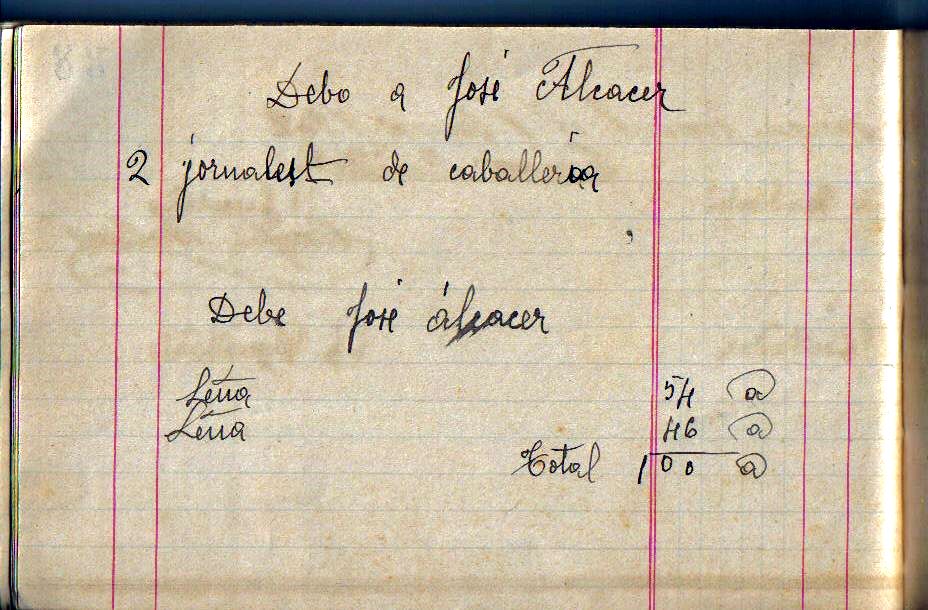 Debo a José Alcacer
2 jornalest de caballeria
Debe José álcacer
Leña 54 @
Leña 46 @
Total 100 @